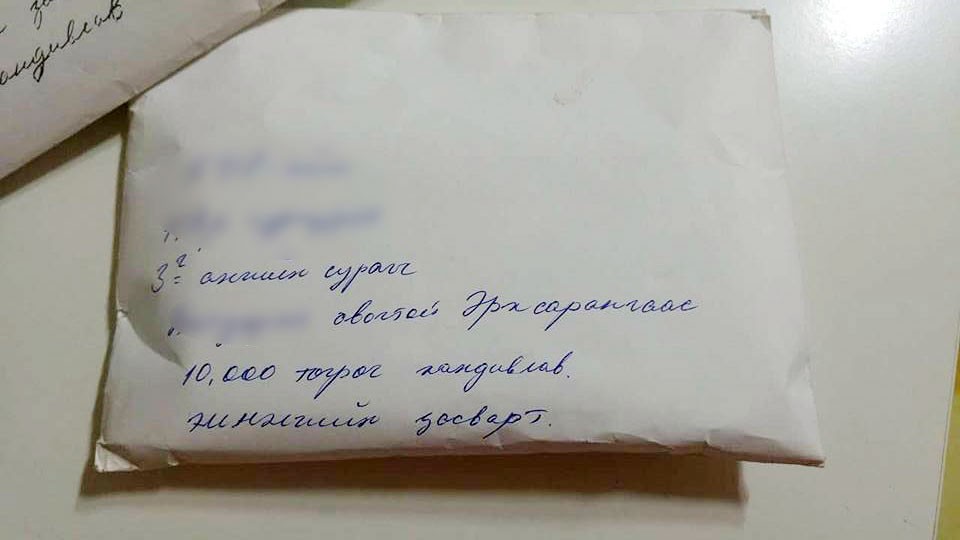 хандивлав
3-г ангийн сурагч
овогтой Эрхсарангаас
10,000 төгрөг хандивлав.
засварт.